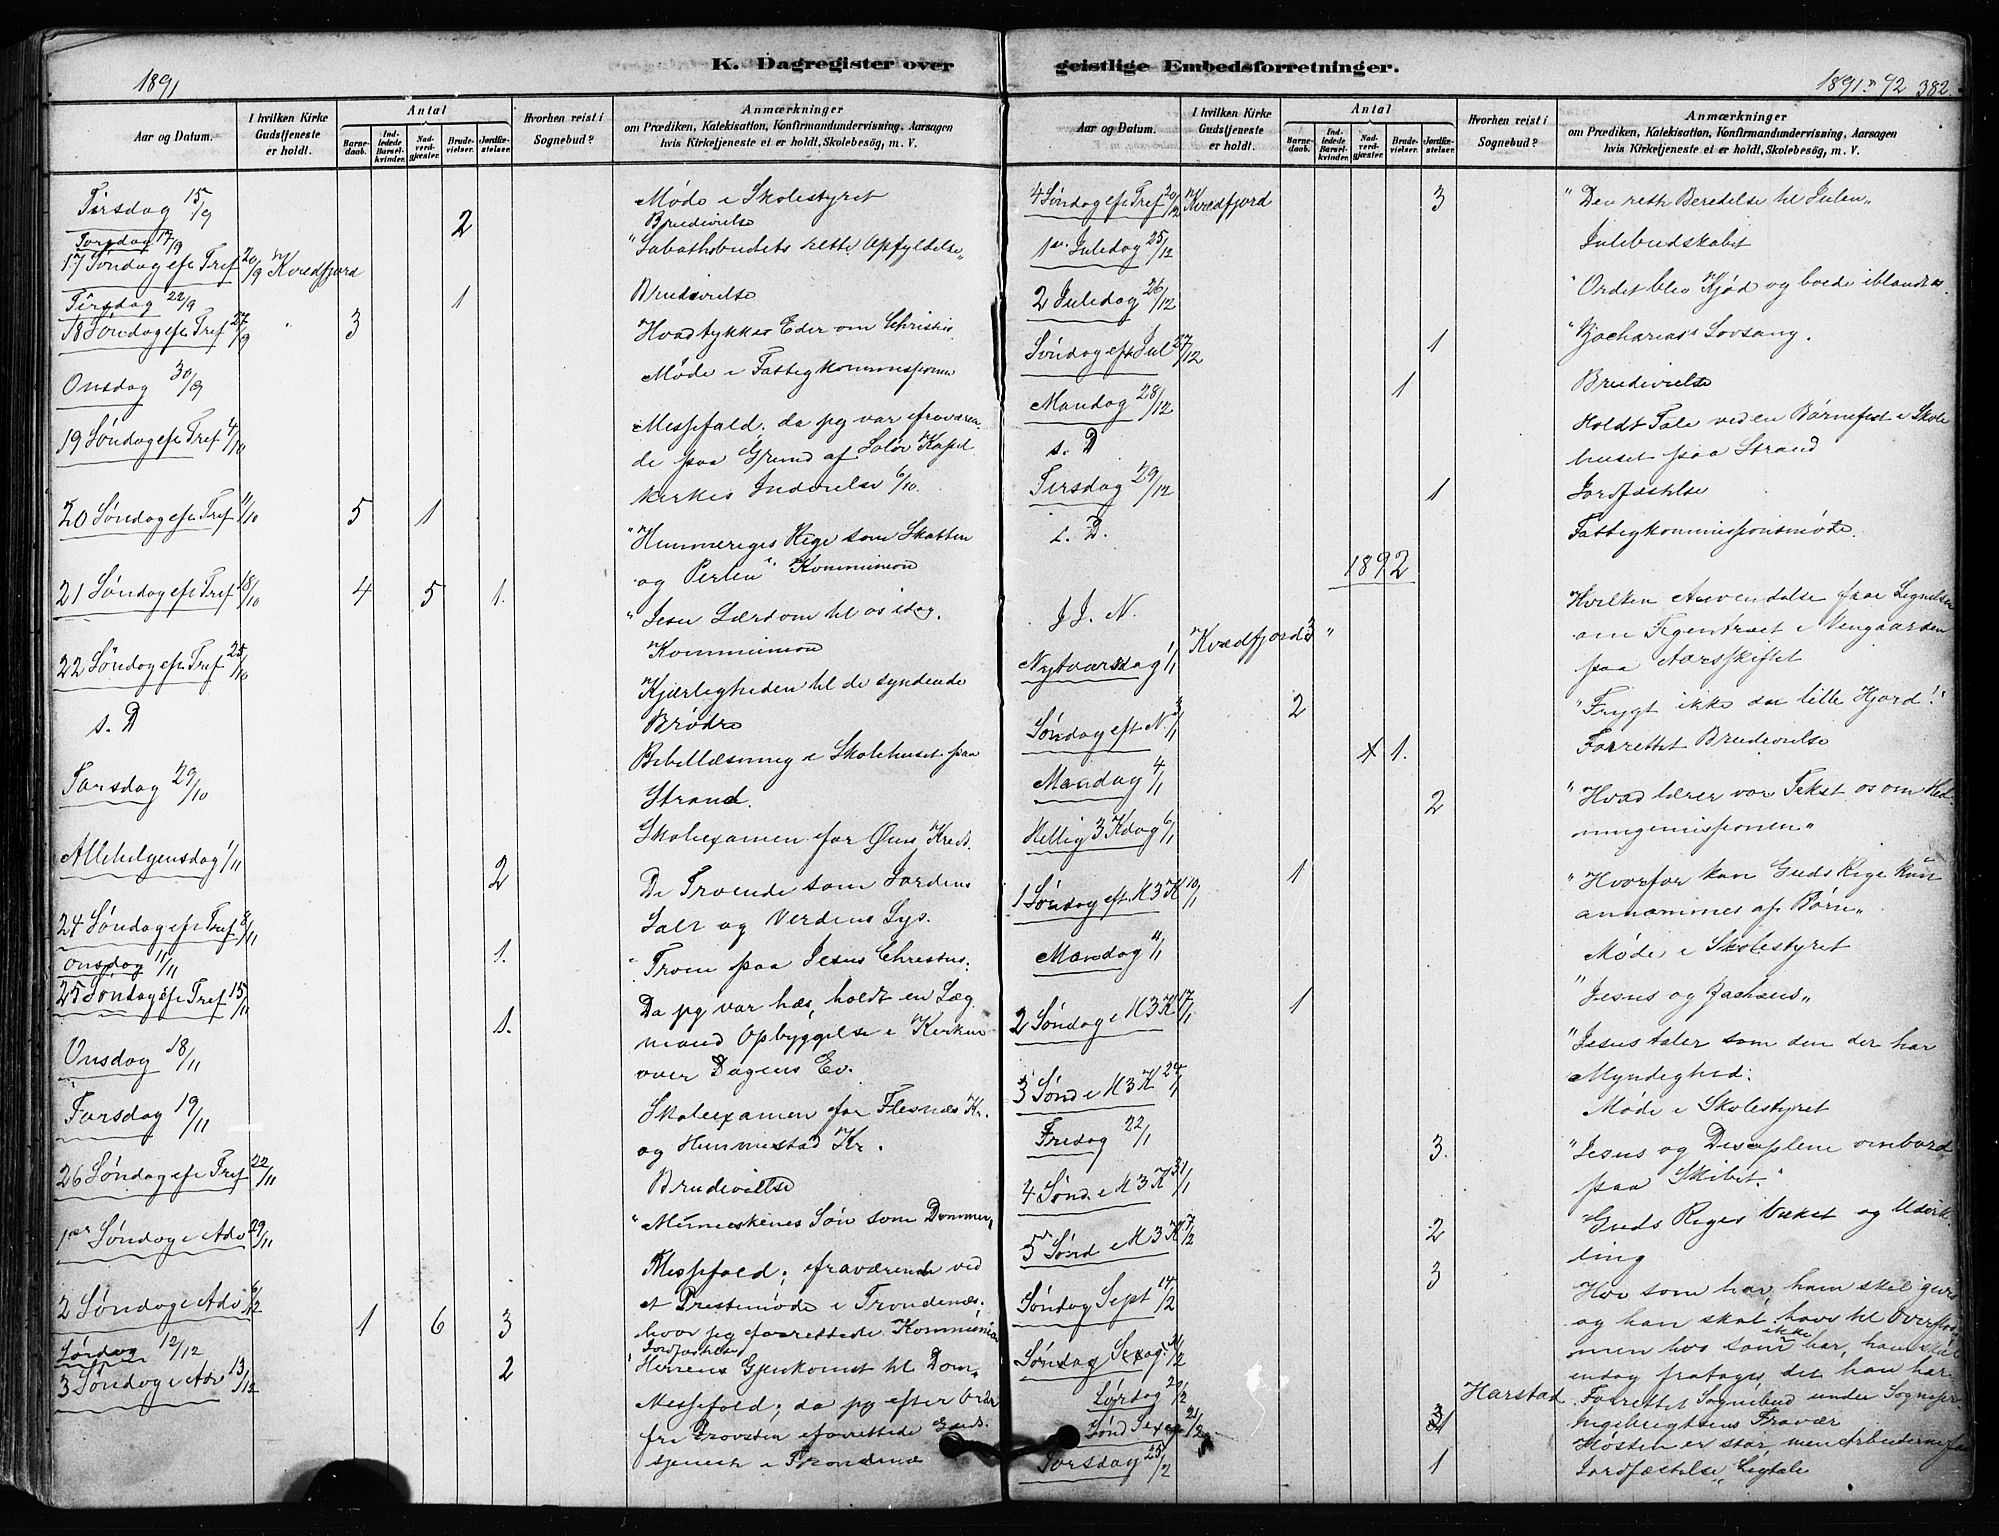 1891
K. Dagregister over
Aar og Datum.
I hvilken Kirke Gudstjeneste er holdt.
Antal
Barnedaab.
Indledede Barselkvinder.
Nadverdgjæster.
Brudevielser.
Jordfæstelser.
Hvorhen reist i Sognebud?
Anmærkninger
om Prædiken, Katekisation, Konfirmandundervisning, Aarsagen
hvis Kirketjeneste ei er holdt, Skolebesög, m. V.
Tirsdag 15/9 Møde i Skolestyret
Torsdag 17/9 2 Brudevielse
17 Søndag eft Tref 20/9 Kvædfjord "Sabathsbudets rette Opfyldelse"
Tirsdag 22/9 1 Brudevielse
18 Søndag eft Tref 27/9 " 3 Hvad tykkes Eder om Christus
Onsdag 30/9 Møde i Fattigkommissionen
19 Søndag eft Tref 4/10 Messefald, da jeg var fraværen
de paa Grund af Kapel
kirkes Indvielse 6/10.
20 Søndag eft Tref 11/10 5 1
"Himmeriges Rige som Skatten
og Perlen" Kommunion
21 Søndag eft Tref 18/10 4 5 1.
"Jesu Lærdom til os idag.
Kommunion
22 Søndag eft Tref 25/10
Kjærligheden til de syndende
Brødre
s. D
Bibellæsning i Skolehuset paa
Strand.
Torsdag 29/10
Skoleexamen for Øens Kreds.
Allehelgensdag 1/11 2
De Troende som Jordens
Salt og Verdens Lys.
24 Søndag eft Tref 8/11
onsdag 11/11 1.
"Troen paa Jesus Christus.
25 Søndag eft Tref 15/11
Da jeg var hæs, holdt en Læg
mand Opbyggelse i Kirken
over Dagens Ev.
1.
Onsdag 18/11
Torsdag 19/11
Skoleexamen for Flesnæs Kr.
og Hemmestad Kr.
26 Søndag eft Tref 22/11
Brudevielse
"Menneskenes Søn som Dommer"
1ste Søndag i Adv 29/11
Messefald; fraværende ved
et Prestemøde i Trondenæs,
hvor jeg forrettede Kommunion
2 Søndag i Adv 6/12 1 6 3
Lørdag 12/12 Jordfæstelse
3 Søndag i Adv 13/12 2
"Herrens Gjenkomst til Dom"
Messefald; da jeg efter Ordre
fra Provsten forrettede Guds
tjeneste i Trondenæs
geistlige Embedsforretninger.
1891 92 382
Aar og Datum.
I hvilken Kirke Gudstjeneste er holdt.
Antal
Barnedaab.
Indledede Barselkvinder.
Nadverdgjæster.
Brudevielser.
Jordfæstelser.
Hvorhen reist i Sognebud?
Anmærkninger
om Prædiken, Katekisation, Konfirmandundervisning, Aarsagen
hvis Kirketjeneste ei er holdt, Skolebesög, m. V.
4 Søndag eft Tref 20/12 Kvædfjord 3 "Den rette Beredelse til Julen"
1ste Juledag 25/12 Julebudskabet
2 Juledag 26/12 "Ordet blev Kjød og boede iblandt os
Søndag eft Jul 27/12 1 "Zacharias's Lovsang.
Mandag 28/12 1 Brudevielse
s. D
Holdt Tale ved en Børnefest i Skole
huset paa Strand
Tirsdag 29/12 1 Jordfæstelse
s. D. Fattigkommissionsmøde.
1892
J. J. N.
Nytaarsdag 1/1 Kvædfjord 3 "
Hvilken Anvendelse faar Lignelsen
om Figentræet i Vingaarden
paa Aarsskiftet
Søndag eft N 3/1 2 "Frygt ikke du lille Hjord!"
Mandag 4/1 1. Forrettet Brudevielse
Hellig 3 Kdag 6/1 2
"Hvad lærer vor Tekst os om Hed
ningemissionen"
1 Søndag eft H 3 K 10/1 1
"Hvorfor kan Guds Rige kun
annammes af Børn"
Mandag 11/1 Møde i Skolestyret
2 Søndag i H 3 K 17/1 1 "Jesus og Zachæus"
3 Sønd i H 3 K 24/1
"Jesus taler som den der har
Myndighed.
Fredag 22/1 Møde i Skolestyret
4 Sønd i H 3 K 31/1 3.
"Jesus og Disciplene ombord
paa Skibet."
5 Sønd i H 3 K 7/2 2
Guds Riges Vækst og Udvik
ling
Søndag Sept 14/2 3
Hvo som har, ham skal gives
og han skal have til Overflod,
men hvo som ikke har, ham skal
endog fratages det han har
Søndag Sexag. 21/2
Lørdag 20/2 Harstad Forrettet Sognebud under Sognepr
Ingebrigtsens Fravær
Sønd Sexag 21/2 Høsten er stor, men Arbeiderne faa
Torsdag 25/2 1 Jordfæstelse, Ligtale